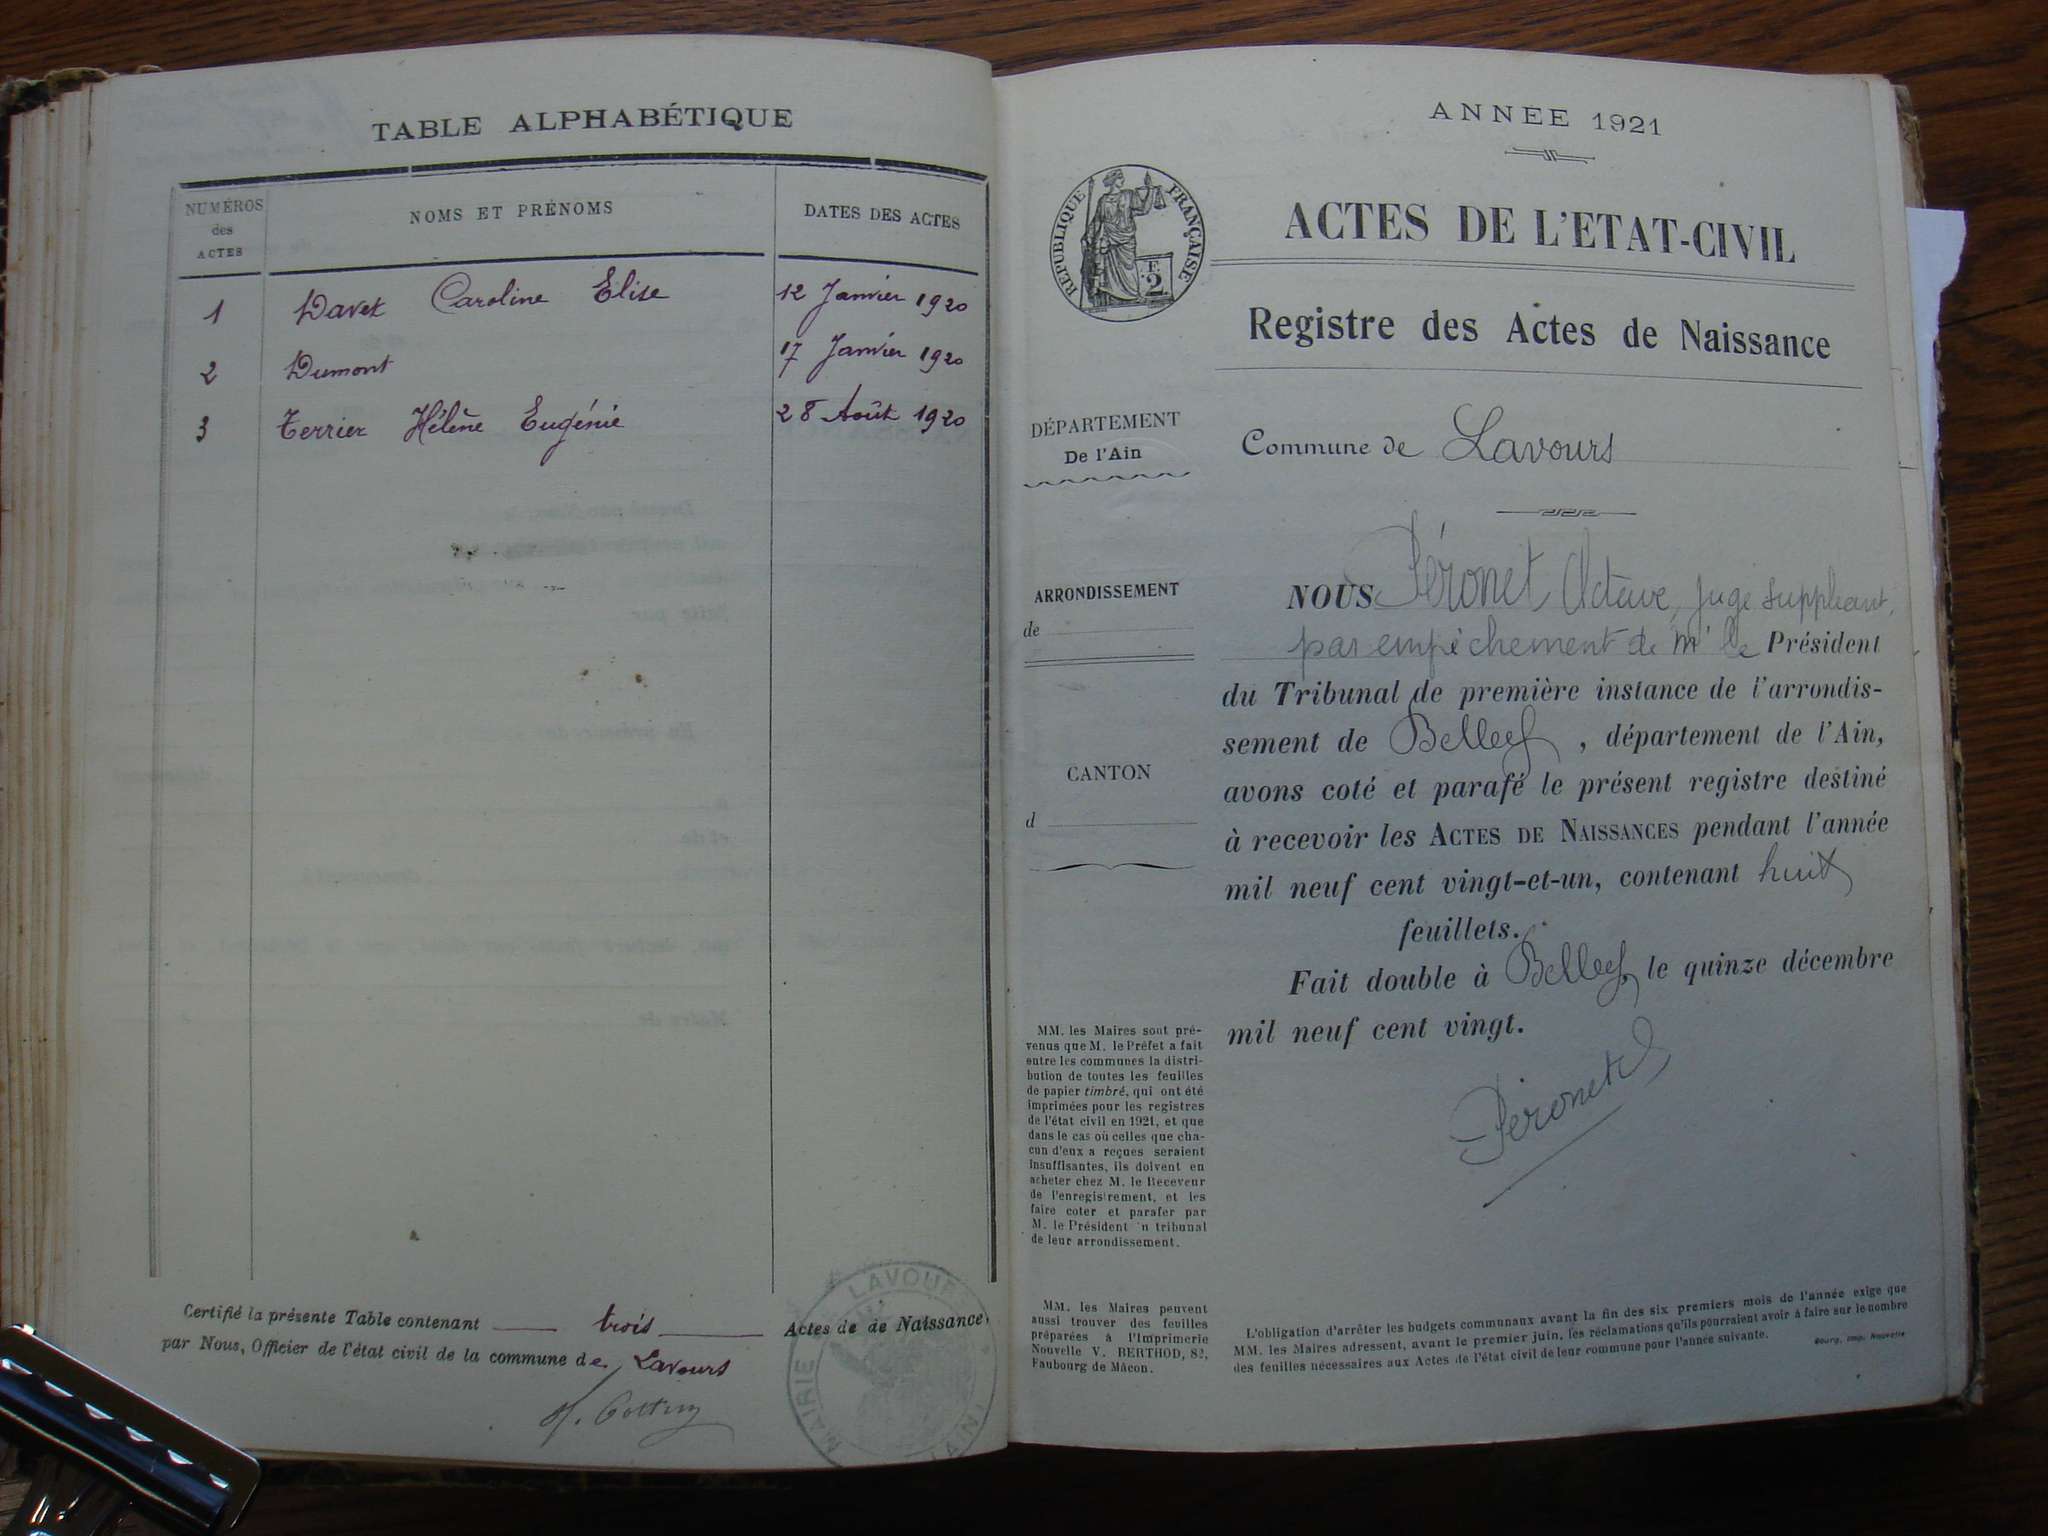 TABLE ALPHABÉTIQUE
NUMÉROS des ACTES
NOMS ET PRÉNOMS
DATES DES ACTES
1 Davet Caroline Elise 12 Janvier 1920
2 Dumont 17 Janvier 1920
3 Terrier Hélène Eugénie 28 Août 1920
Certifié la présente Table contenant trois Actes de de Naissance
par Nous, Officier de l'état civil de la commune de Lavours
MAIRIE LAVOURS AIN
ANNÉE 1921
RÉPUBLIQUE FRANÇAISE
F. 2
ACTES DE L'ETAT-CIVIL
Registre des Actes de Naissance
DÉPARTEMENT
De l'Ain
Commune de Lavours
ARRONDISSEMENT
de
CANTON
d
NOUS Péronet Octave, juge suppléant,
par empêchement de Mr le Président
du Tribunal de première instance de l'arrondis-
sement de Belley, département de l'Ain,
avons coté et parafé le présent registre destiné
à recevoir les ACTES DE NAISSANCES pendant l'année
mil neuf cent vingt-et-un, contenant huit
feuillets.
Fait double à Belley, le quinze décembre
mil neuf cent vingt.
Péronet
MM. les Maires sont pré-
venus que M. le Préfet a fait
entre les communes la distri-
bution de toutes les feuilles
de papier timbré, qui ont été
imprimées pour les registres
de l'état civil en 1921, et que
dans le cas où celles que cha-
cun d'eux a reçues seraient
insuffisantes, ils doivent en
acheter chez M. le Receveur
de l'enregistrement, et les
faire coter et parafer par
M. le Président 'n tribunal
de leur arrondissement.
MM. les Maires peuvent
aussi trouver des feuilles
préparées à l'Imprimerie
Nouvelle V. BERTHOD, 82,
Faubourg de Mâcon.
L'obligation d'arrêter les budgets communaux avant la fin des six premiers mois de l'année exige que
MM. les Maires adressent, avant le premier juin, les réclamations qu'ils pourraient avoir à faire sur le nombre
des feuilles nécessaires aux Actes de l'état civil de leur commune pour l'année suivante.
Bourg, Imp. Nouvelle